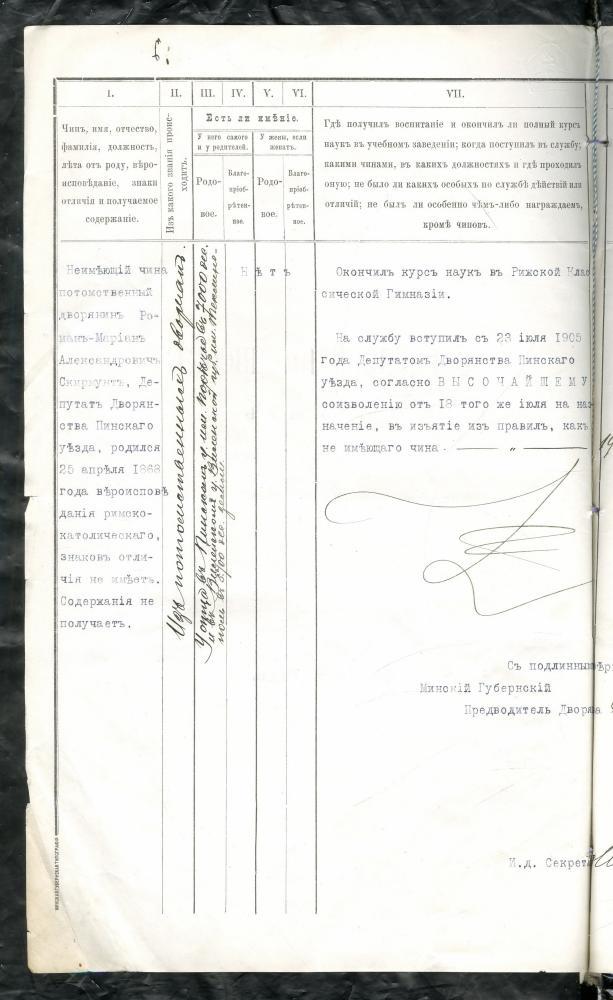 I.
II.
III.
IV.
V.
VI.
VII.
Чинъ, имя, отчество,
фамилія, должность,
лѣта отъ роду, вѣро-
исповѣданіе, знаки
отличія и получаемое
содержаніе.
Изъ какого званія проис-
ходитъ.
Есть ли имѣніе.
У него самого
и у родителей.
У жены, если
женатъ.
Родо-
вое.
Благо-
пріоб-
рѣтен-
ное.
Родо-
вое.
Благо-
пріоб-
рѣтен-
ное.
Гдѣ получилъ воспитаніе и окончилъ ли полный курсъ
наукъ въ учебномъ заведеніи; когда поступилъ въ службу;
какими чинами, въ какихъ должностяхъ и гдѣ проходилъ
оную; не было ли какихъ особыхъ по службѣ дѣйствій или
отличій; не былъ ли особенно чѣмъ-либо награждаемъ,
кромѣ чиновъ.
Неимѣющій чина
потомственный
дворянинъ Ро-
манъ-Маріанъ
Александровичъ
Скирмунтъ, Де-
путатъ Дворян-
ства Пинскаго
уѣзда, родился
25 апрѣля 1868
года вѣроисповѣ
данія римско-
католическаго,
знаковъ отли-
чія не имѣетъ.
Содержанія не
получаетъ.
Изъ потомственныхъ дворянъ.
У отца въ Пинскомъ у. им. въ 7000 дес.
и въ Виленской губ. им.
въ дес.
Нѣтъ
Окончилъ курсъ наукъ въ Рижской Клас
сической Гимназіи.
На службу вступилъ съ 23 іюля 1905
года Депутатомъ Дворянства Пинскаго
уѣзда, согласно ВЫСОЧАЙШЕМУ
соизволенію отъ 18 того же іюля на наз
наченіе, въ изъятіе изъ правилъ, какъ
не имѣющаго чина. — „ —
19
Съ подлиннымъ
Минскій Губернскій
Предводитель Дворян
И.д. Секрет